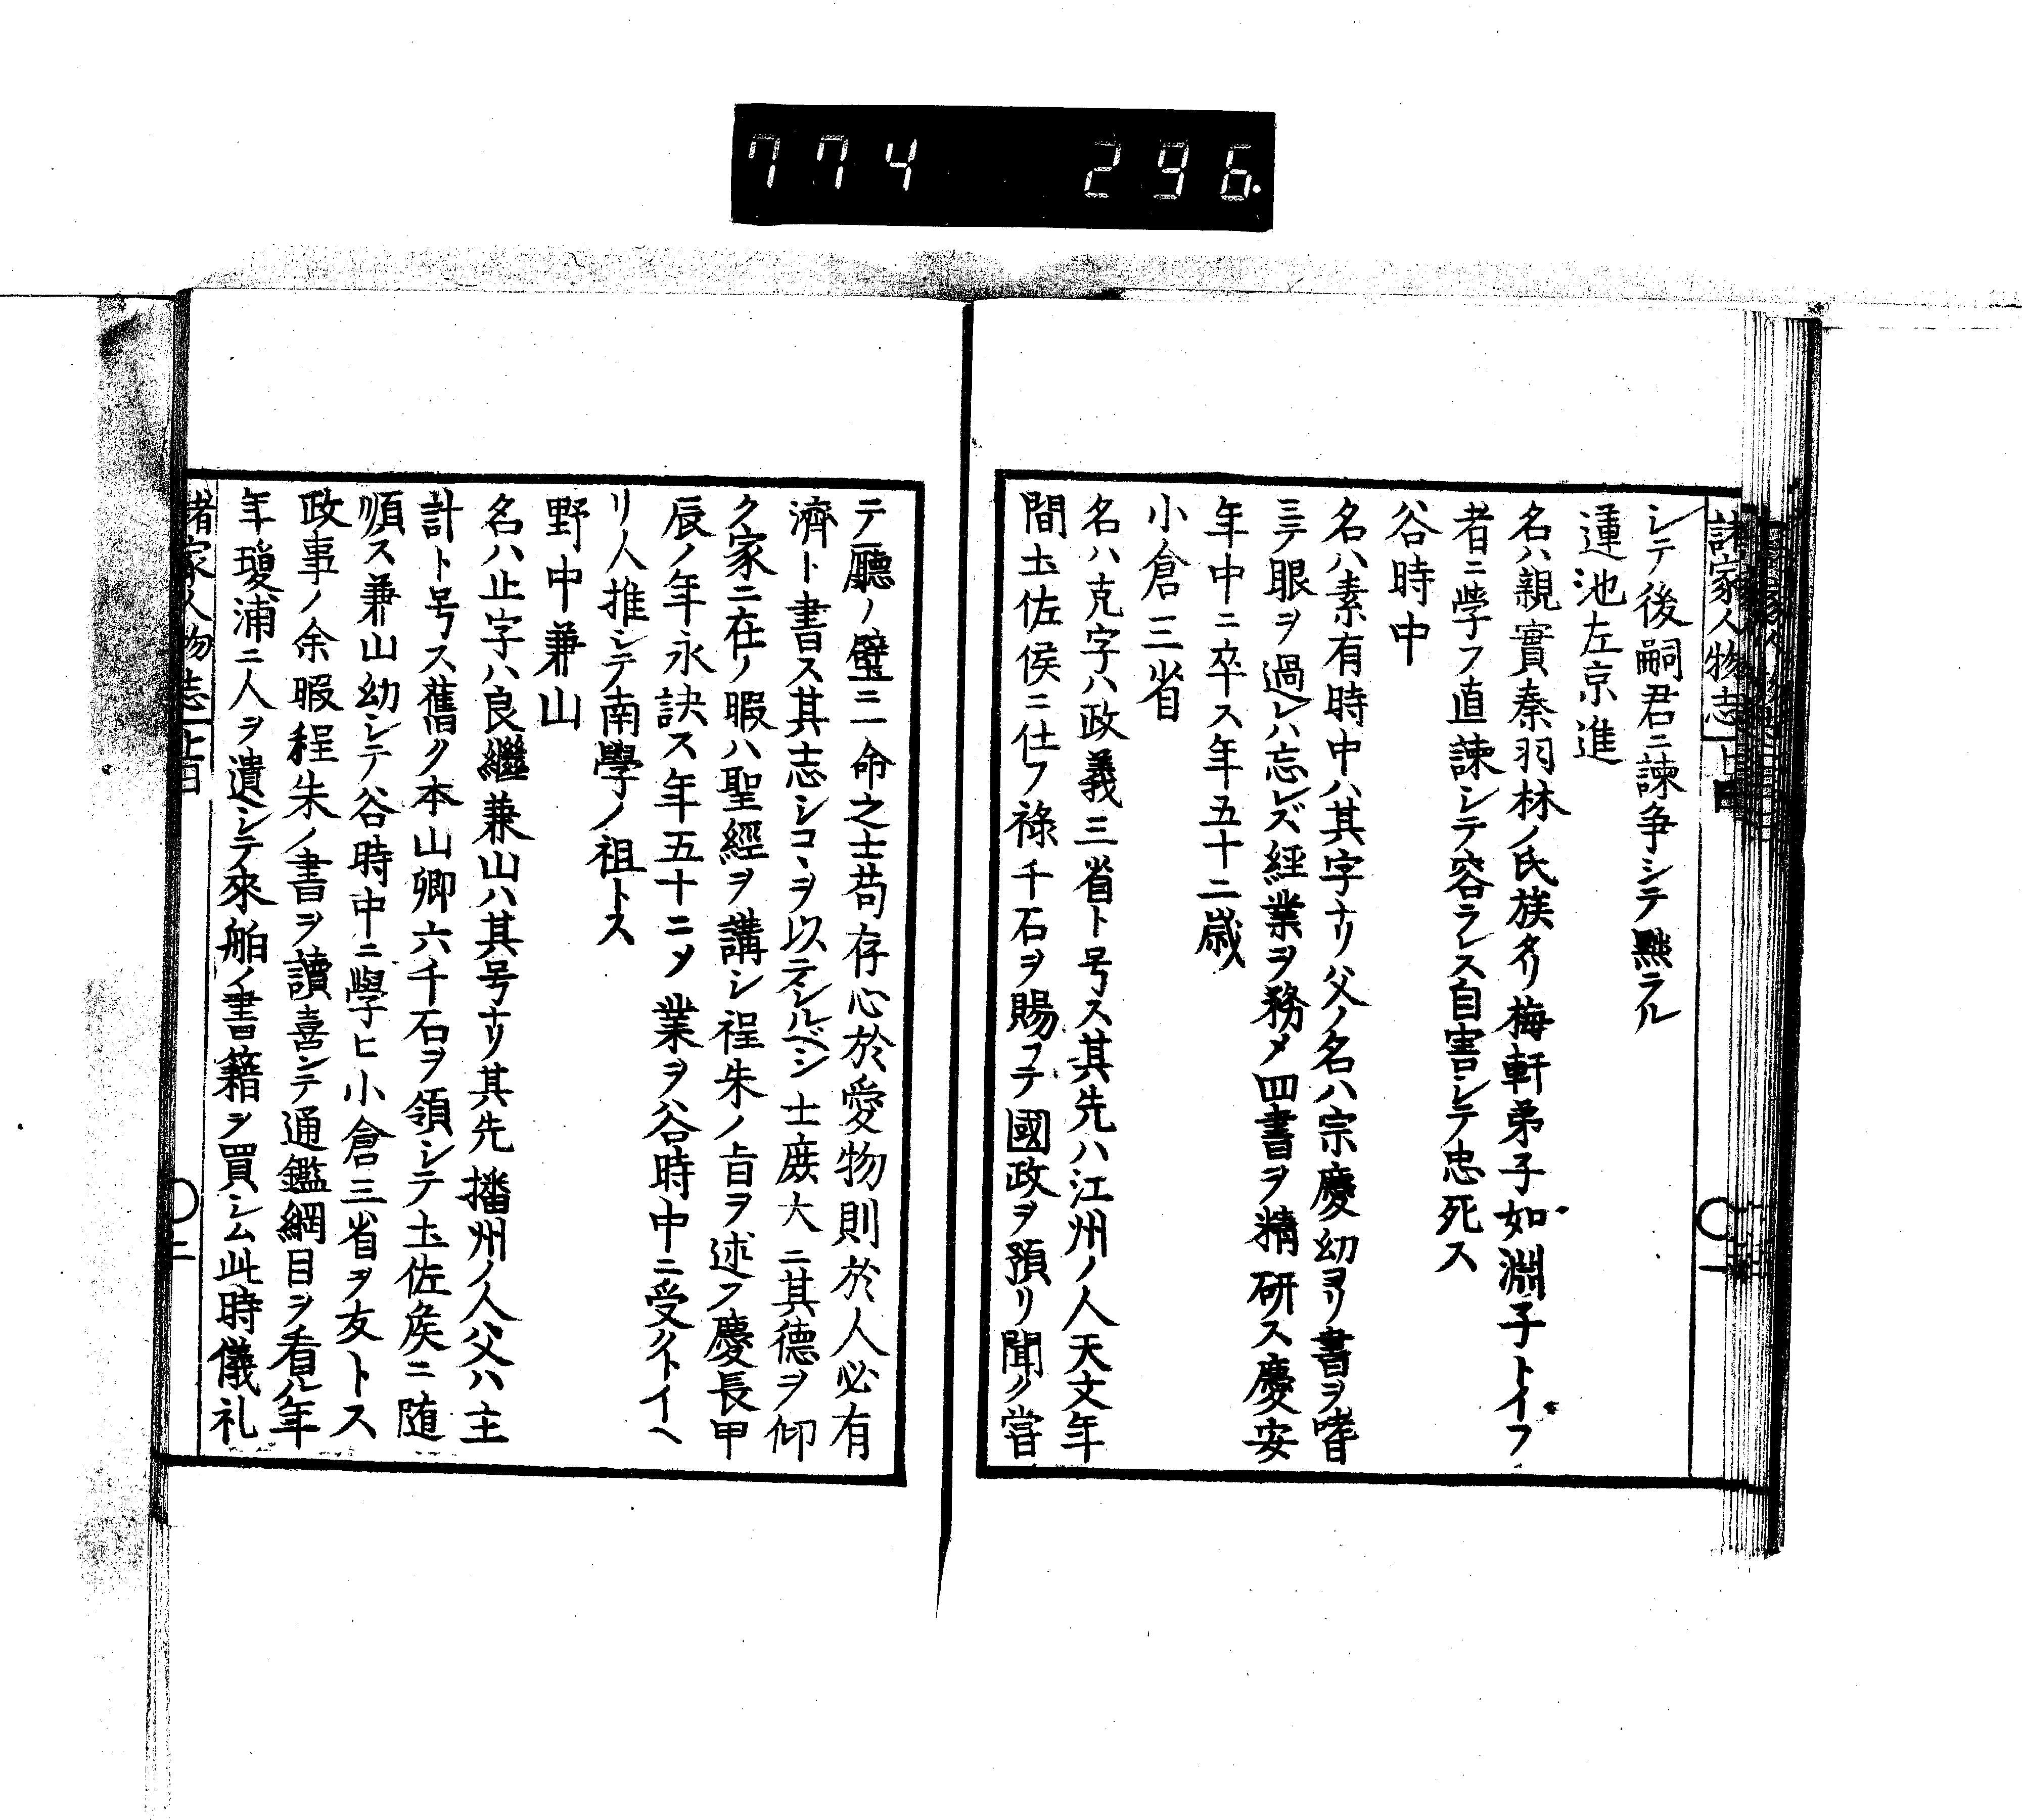 774 296.
諸家人物志
シテ後嗣君ニ諫争シテ黙ラル
蓮池左京進
名ハ親實秦羽林ノ氏族タリ梅軒弟子如淵子トイフ
者ニ学フ直諫シテ容ラレス自害シテ忠死ス
谷時中
名ハ素有時中ハ其字ナリ父ノ名ハ宗慶幼ヨリ書ヲ嗜
三テ眼ヲ過レハ忘レズ經業ヲ務メ四書ヲ精研ス慶安
年中ニ卒ス年五十二歳
小倉三省
名ハ克字ハ政義三省ト号ス其先ハ江州ノ人天文年
間土佐侯ニ仕フ祿千石ヲ賜フテ國政ヲ預リ聞ク嘗
テ廳ノ壁ニ一命之士苟存心於愛物則於人必有
濟ト書ス其志シコヽヲ以テシルベシ士庶大ニ其德ヲ仰
ク家ニ在ノ暇ハ聖經ヲ講シ程朱ノ旨ヲ述フ慶長甲
辰ノ年永訣ス年五十ニメ業ヲ谷時中ニ受クトイヘ
リ人推シテ南學ノ祖トス
野中兼山
名ハ止字ハ良繼兼山ハ其号ナリ其先播州ノ人父ハ主
計ト号ス舊ク本山卿六千石ヲ領シテ土佐矦ニ随
順ス兼山幼シテ谷時中ニ學ヒ小倉三省ヲ友トス
政事ノ余暇程朱ノ書ヲ讀喜シテ通鑑綱目ヲ看ル年
年瓊浦ニ人ヲ遣シテ來舶ノ書籍ヲ買シム此時儀礼
諸家人物志 二